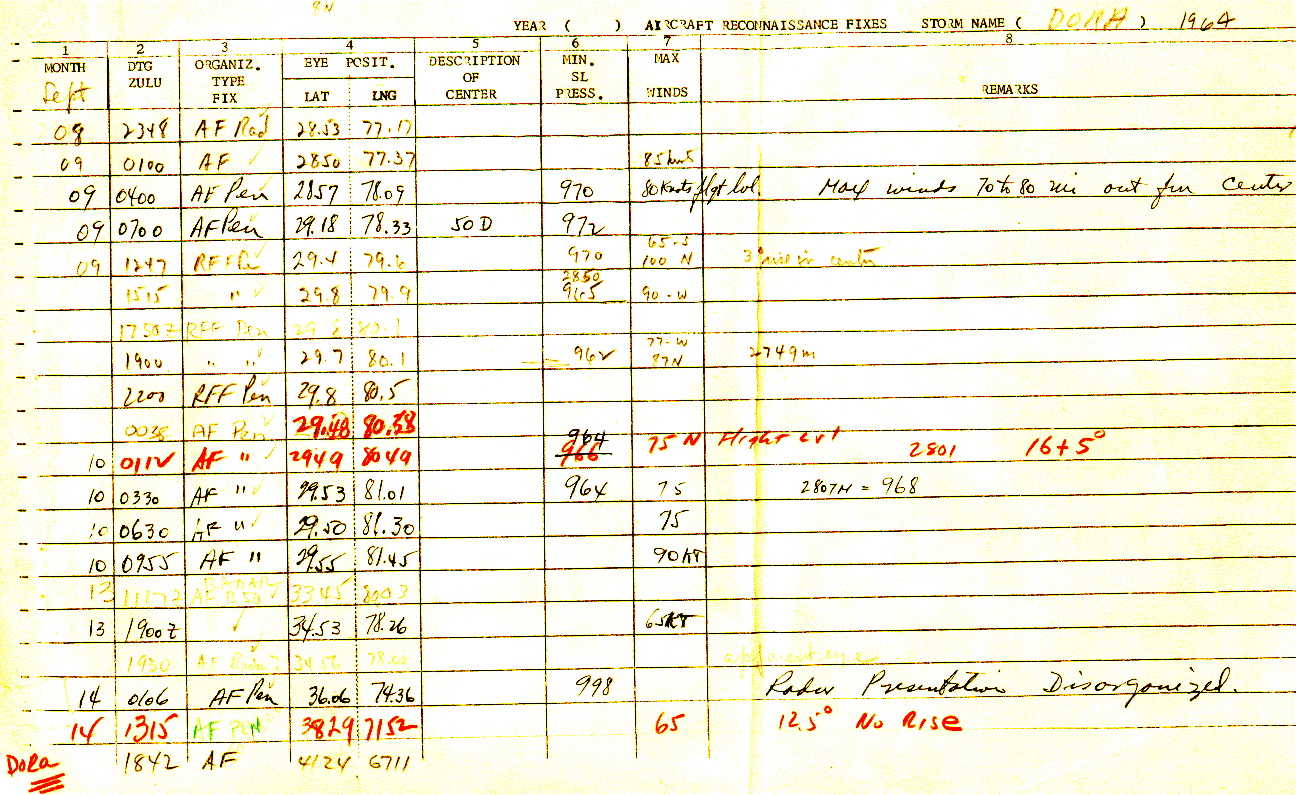 YEAR ( ) AIRCRAFT RECONNAISSANCE FIXES STORM NAME ( DORA ) 1964
1 2 3 4 5 6 7 8
MONTH DTG ZULU ORGANIZ. TYPE FIX EYE POSIT. LAT LNG DESCRIPTION OF CENTER MIN. SL PRESS. MAX WINDS REMARKS
Sept
08 2348 AF Rad 28.53 77.17
09 0100 AF ✓ 2850 77.37 85 knts
09 0400 AF Pen 2857 78.09 970 80 Knots flgt lvl. Max winds 70 to 80 mi out fm center
09 0700 AF Pen 29.18 78.33 50 D 972
65-S
09 1247 RFF 29.4 79.6 970 100 N 3 in center
2850
1515 " ✓ 29.8 79.9 965 90-W
1750Z RFF Pen 80.1
77-W
1900 " " ✓ 29.7 80.1 962 87N 2749m
2200 RFF Pen 29.8 80.5
0038 AF Pen 29.48 80.38
964
10 0112 AF " ✓ 2949 8049 966 75 N Flight Lvl 2801 16+5°
10 0330 AF " ✓ 29.53 81.01 964 75 2807M = 968
10 0630 AF " ✓ 29.50 81.30 75
10 0955 AF " 29.55 81.45 90 KT
13 1117Z AF 3345 8003
13 1900Z ✓ 34.53 78.26 65KT
1930 AF
14 0106 AF Pen 36.06 74.36 998 Radar Presentation Disorganized.
14 1315 AF PEN 3829 7152 65 12.5° No Rise
DORA 1842 AF 4124 6711